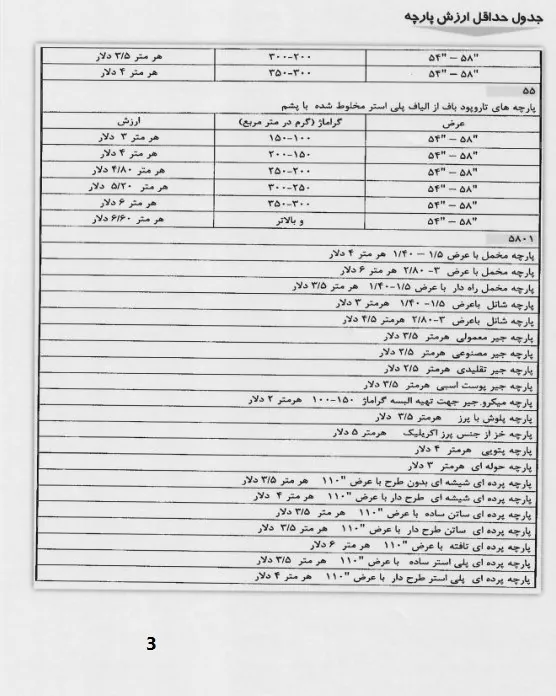 جدول حداقل ارزش پارچه
۵۴" – ۵۸" ۳۰۰-۲۰۰ هر متر ۳/۵ دلار
۵۴" – ۵۸" ۳۵۰-۳۰۰ هر متر ۴ دلار
۵۵
پارچه های تاروپود باف از الیاف پلی استر مخلوط شده با پشم
عرض گراماژ (گرم در متر مربع) ارزش
۵۴" – ۵۸" ۱۵۰-۱۰۰ هر متر ۳ دلار
۵۴" – ۵۸" ۲۰۰-۱۵۰ هر متر ۴ دلار
۵۴" – ۵۸" ۲۵۰-۲۰۰ هر متر ۴/۸۰ دلار
۵۴" – ۵۸" ۳۰۰-۲۵۰ هر متر ۵/۲۰ دلار
۵۴" – ۵۸" ۳۵۰-۳۰۰ هر متر ۶ دلار
۵۴" – ۵۸" و بالاتر هر متر ۶/۶۰ دلار
۵۸۰۱
پارچه مخمل با عرض ۱/۵ – ۱/۴۰ هر متر ۴ دلار
پارچه مخمل با عرض ۳- ۲/۸۰ هر متر ۶ دلار
پارچه مخمل راه دار با عرض ۱/۵-۱/۴۰ هر متر ۳/۵ دلار
پارچه شانل باعرض ۱/۵- ۱/۴۰ هرمتر ۳ دلار
پارچه شانل باعرض ۳-۲/۸۰ هرمتر ۴/۵ دلار
پارچه جیر معمولی هرمتر ۳/۵ دلار
پارچه جیر مصنوعی هرمتر ۲/۵ دلار
پارچه جیر تقلیدی هرمتر ۲/۵ دلار
پارچه جیر پوست اسبی هرمتر ۳/۵ دلار
پارچه میکرو جیر جهت تهیه البسه گراماژ ۱۵۰-۱۰۰ هرمتر ۲ دلار
پارچه پلوش با پرز هرمتر ۳/۵ دلار
پارچه خز از جنس پرز اکریلیک هرمتر ۵ دلار
پارچه پتویی هرمتر ۴ دلار
پارچه حوله ای هرمتر ۳ دلار
پارچه پرده ای شیشه ای بدون طرح با عرض ۱۱۰" هر متر ۳/۵ دلار
پارچه پرده ای شیشه ای طرح دار با عرض ۱۱۰" هر متر ۴ دلار
پارچه پرده ای ساتن ساده با عرض ۱۱۰" هر متر ۳/۵ دلار
پارچه پرده ای ساتن طرح دار با عرض ۱۱۰" هر متر ۳/۵ دلار
پارچه پرده ای تافته با عرض ۱۱۰" هر متر ۶ دلار
پارچه پرده ای پلی استر ساده با عرض ۱۱۰" هر متر ۳/۵ دلار
پارچه پرده ای پلی استر طرح دار با عرض ۱۱۰" هر متر ۴ دلار
3